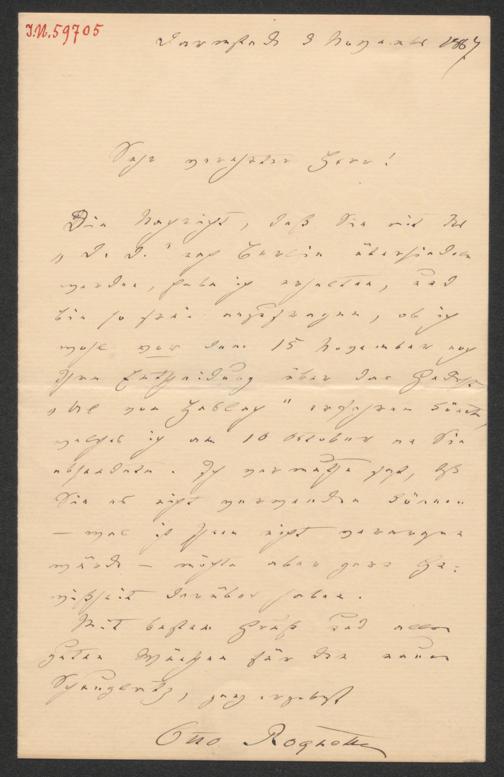 I.N. 59705
Darmstadt 3 November 1887
Sehr verehrter Herr!
Die Nachricht, daß Sie mit der
„D. D." nach Berlin übersiedeln
werden, habe ich erhalten, und
bin so frei anzufragen, ob ich
wohl vor dem 15 November noch
Ihre Entscheidung über das Gedicht
von erfahren könnte,
welches ich am 10 October an Sie
absandte. Ich vermuthe fast, daß
Sie es nicht verwenden können
– was ich Ihnen nicht verargen
würde – möchte aber gern Ge:
wißheit darüber haben.
Mit bestem Gruß und allen
guten Wünschen für die neue
ganz ergebenst
Otto Roquette